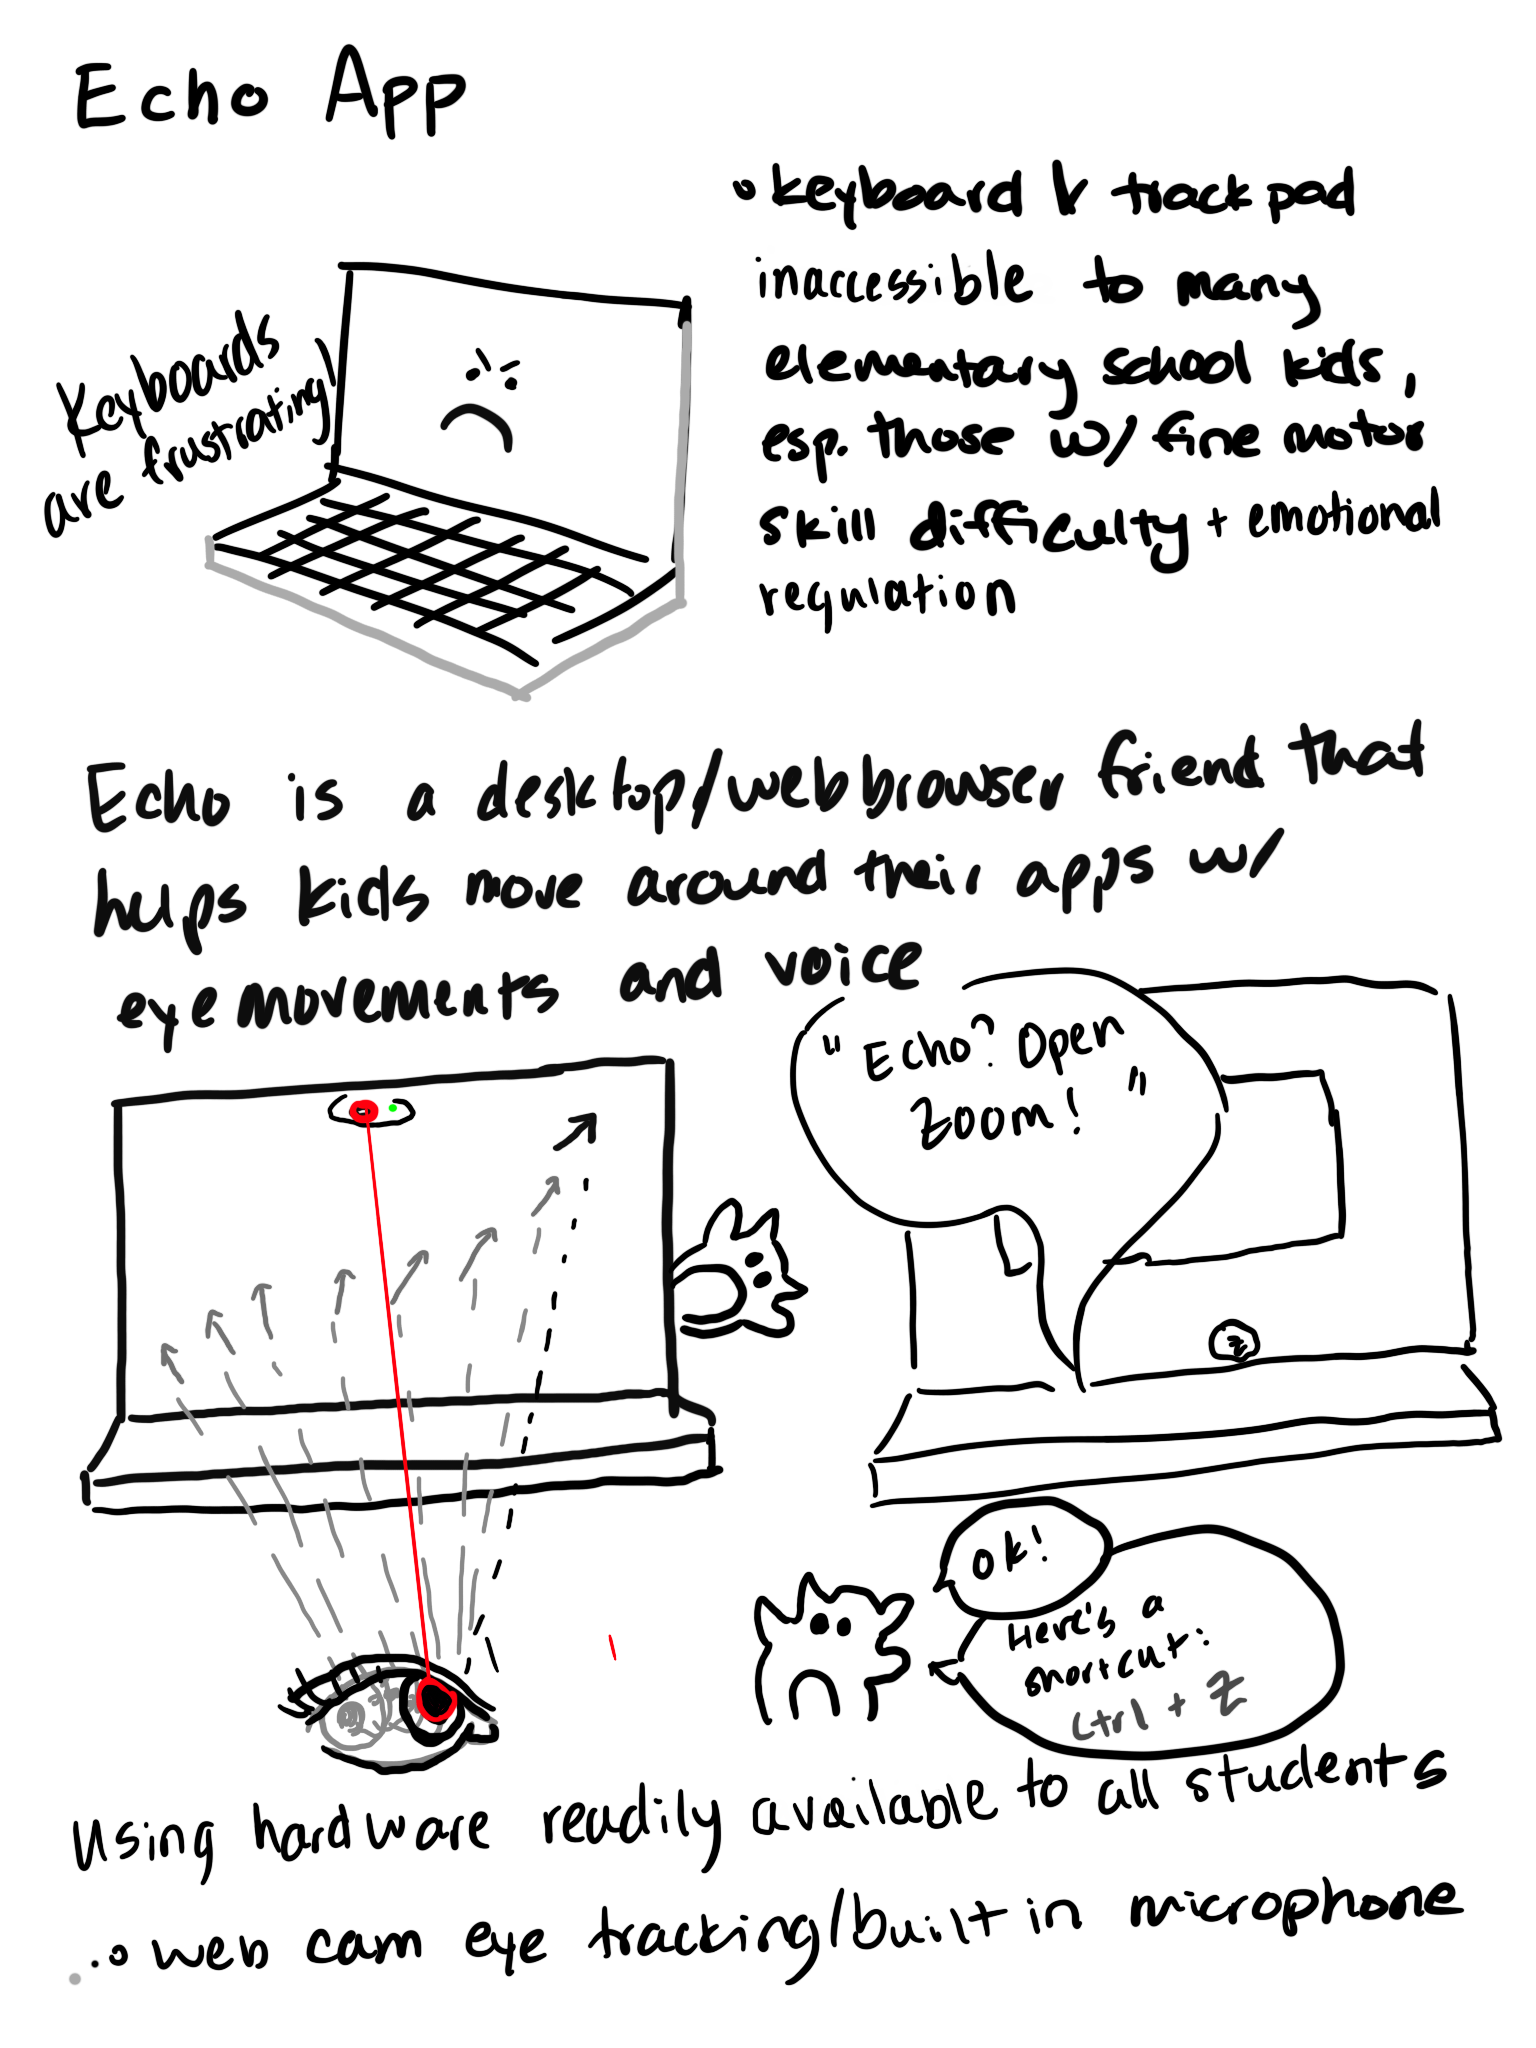 Echo App
Keyboards
are frustrating!
keyboard & trackpad
inaccessible to many
elementary school kids,
esp. those w/ fine motor
skill difficulty + emotional
regulation
Echo is a desktop/web browser friend that
helps kids move around their apps w/
eye movements and voice
"Echo? Open
Zoom!"
Z
ok!
Here's a
shortcut:
Ctrl + Z
Using hardware readily available to all students
web cam eye tracking/built in microphone